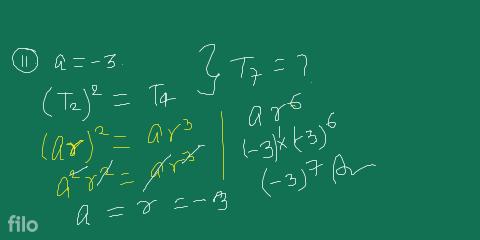 (11) a = -3. } T₇ = ?
(T₂)² = T₄
(ar)² = ar³
a²r² = ar³
a = r = -3
ar⁶
(-3)¹ × (-3)⁶
(-3)⁷ Ans
filo